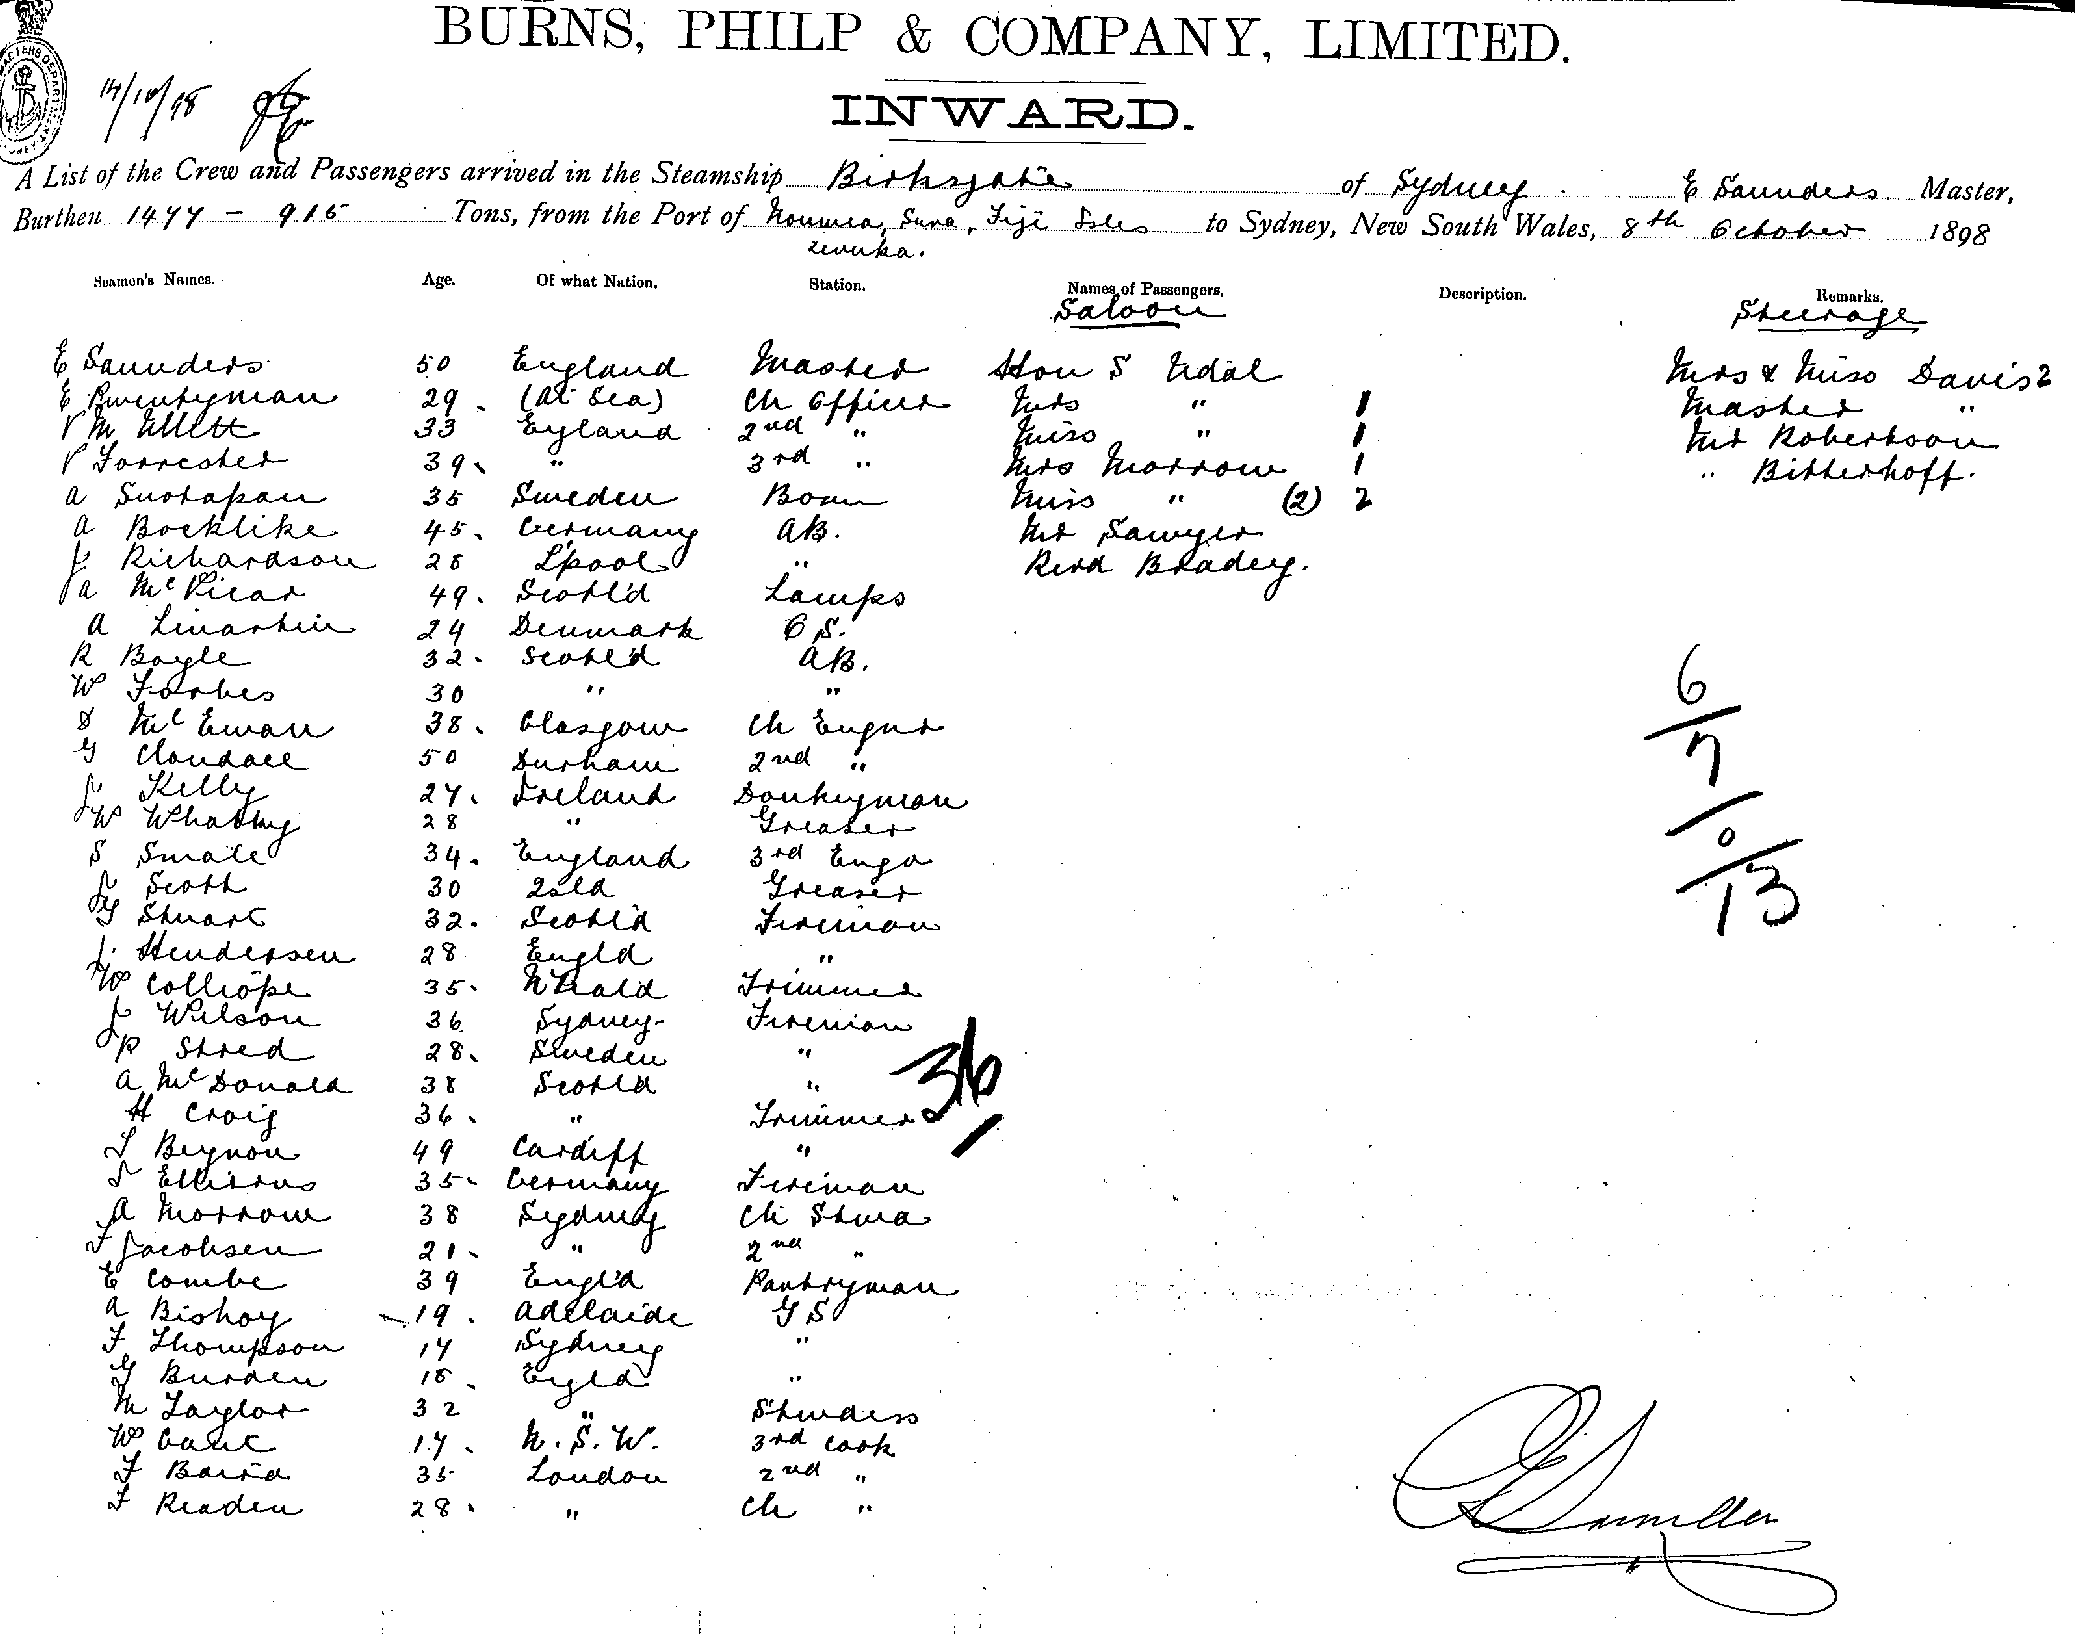 BURNS, PHILP & COMPANY, LIMITED.
INWARD.
14/10/98
A List of the Crew and Passengers arrived in the Steamship Birksgate of Sydney. E Saunders Master,
Burthen 1477 - 915 Tons, from the Port of Noumea, Suva, Fiji Isles to Sydney, New South Wales, 8th October 1898
Levuka.
Seamen's Names. Age. Of what Nation. Station. Names of Passengers, Description. Remarks.
Saloon Steerage
E Saunders 50 England Master Hon S Udal Mrs & Miss Davis 2
E Twentyman 29. (At Sea) Ch Officer Mrs " 1 Master "
33 England 2nd " Miss " 1 Mr Robertson
Forrester 39. " 3rd " Mrs Morrow 1 " Bitterhoff.
A 35 Sweden Bosn Miss " (2) 2
A Bocklike 45. Germany AB. Mr Sawyer
J Richardson 28 L'pool " Revd Bradey.
A McVicar 49. Scotl'd Lamps
A 24 Denmark O S.
R Boyle 32. Scotl'd AB.
W Forbes 30 " "
D McEwan 38. Glasgow Ch Engnr
G 50 Durham 2nd "
J Kelly 27. Ireland Donkeyman
W 28 " Greaser
S Smale 34. England 3rd Engr
J Scott 30 Greaser
G Stuart 32. Scotl'd Fireman
J. Hendersen 28 Engld "
W Colliope 35. Trimmer
J Wilson 36 Sydney Fireman
P Stred 28. Sweden "
A McDonald 38 Scotld "
H Craig 36. " Trimmer
T Beynon 49 Cardiff "
35. Germany Fireman
A Morrow 38 Sydney Ch Stwd
F Jacobsen 21. " 2nd "
E Combe 39 Engl'd Pantryman
A Bishop 19. Adelaide G S
F Thompson 17 Sydney "
G Burden 18. Engld "
M Taylor 32 " Stwdess
W 17. N. S. W. 3rd Cook
F Baird 35 London 2nd "
F Readen 28. " Ch "
36
6
7
0
13
E Saunders